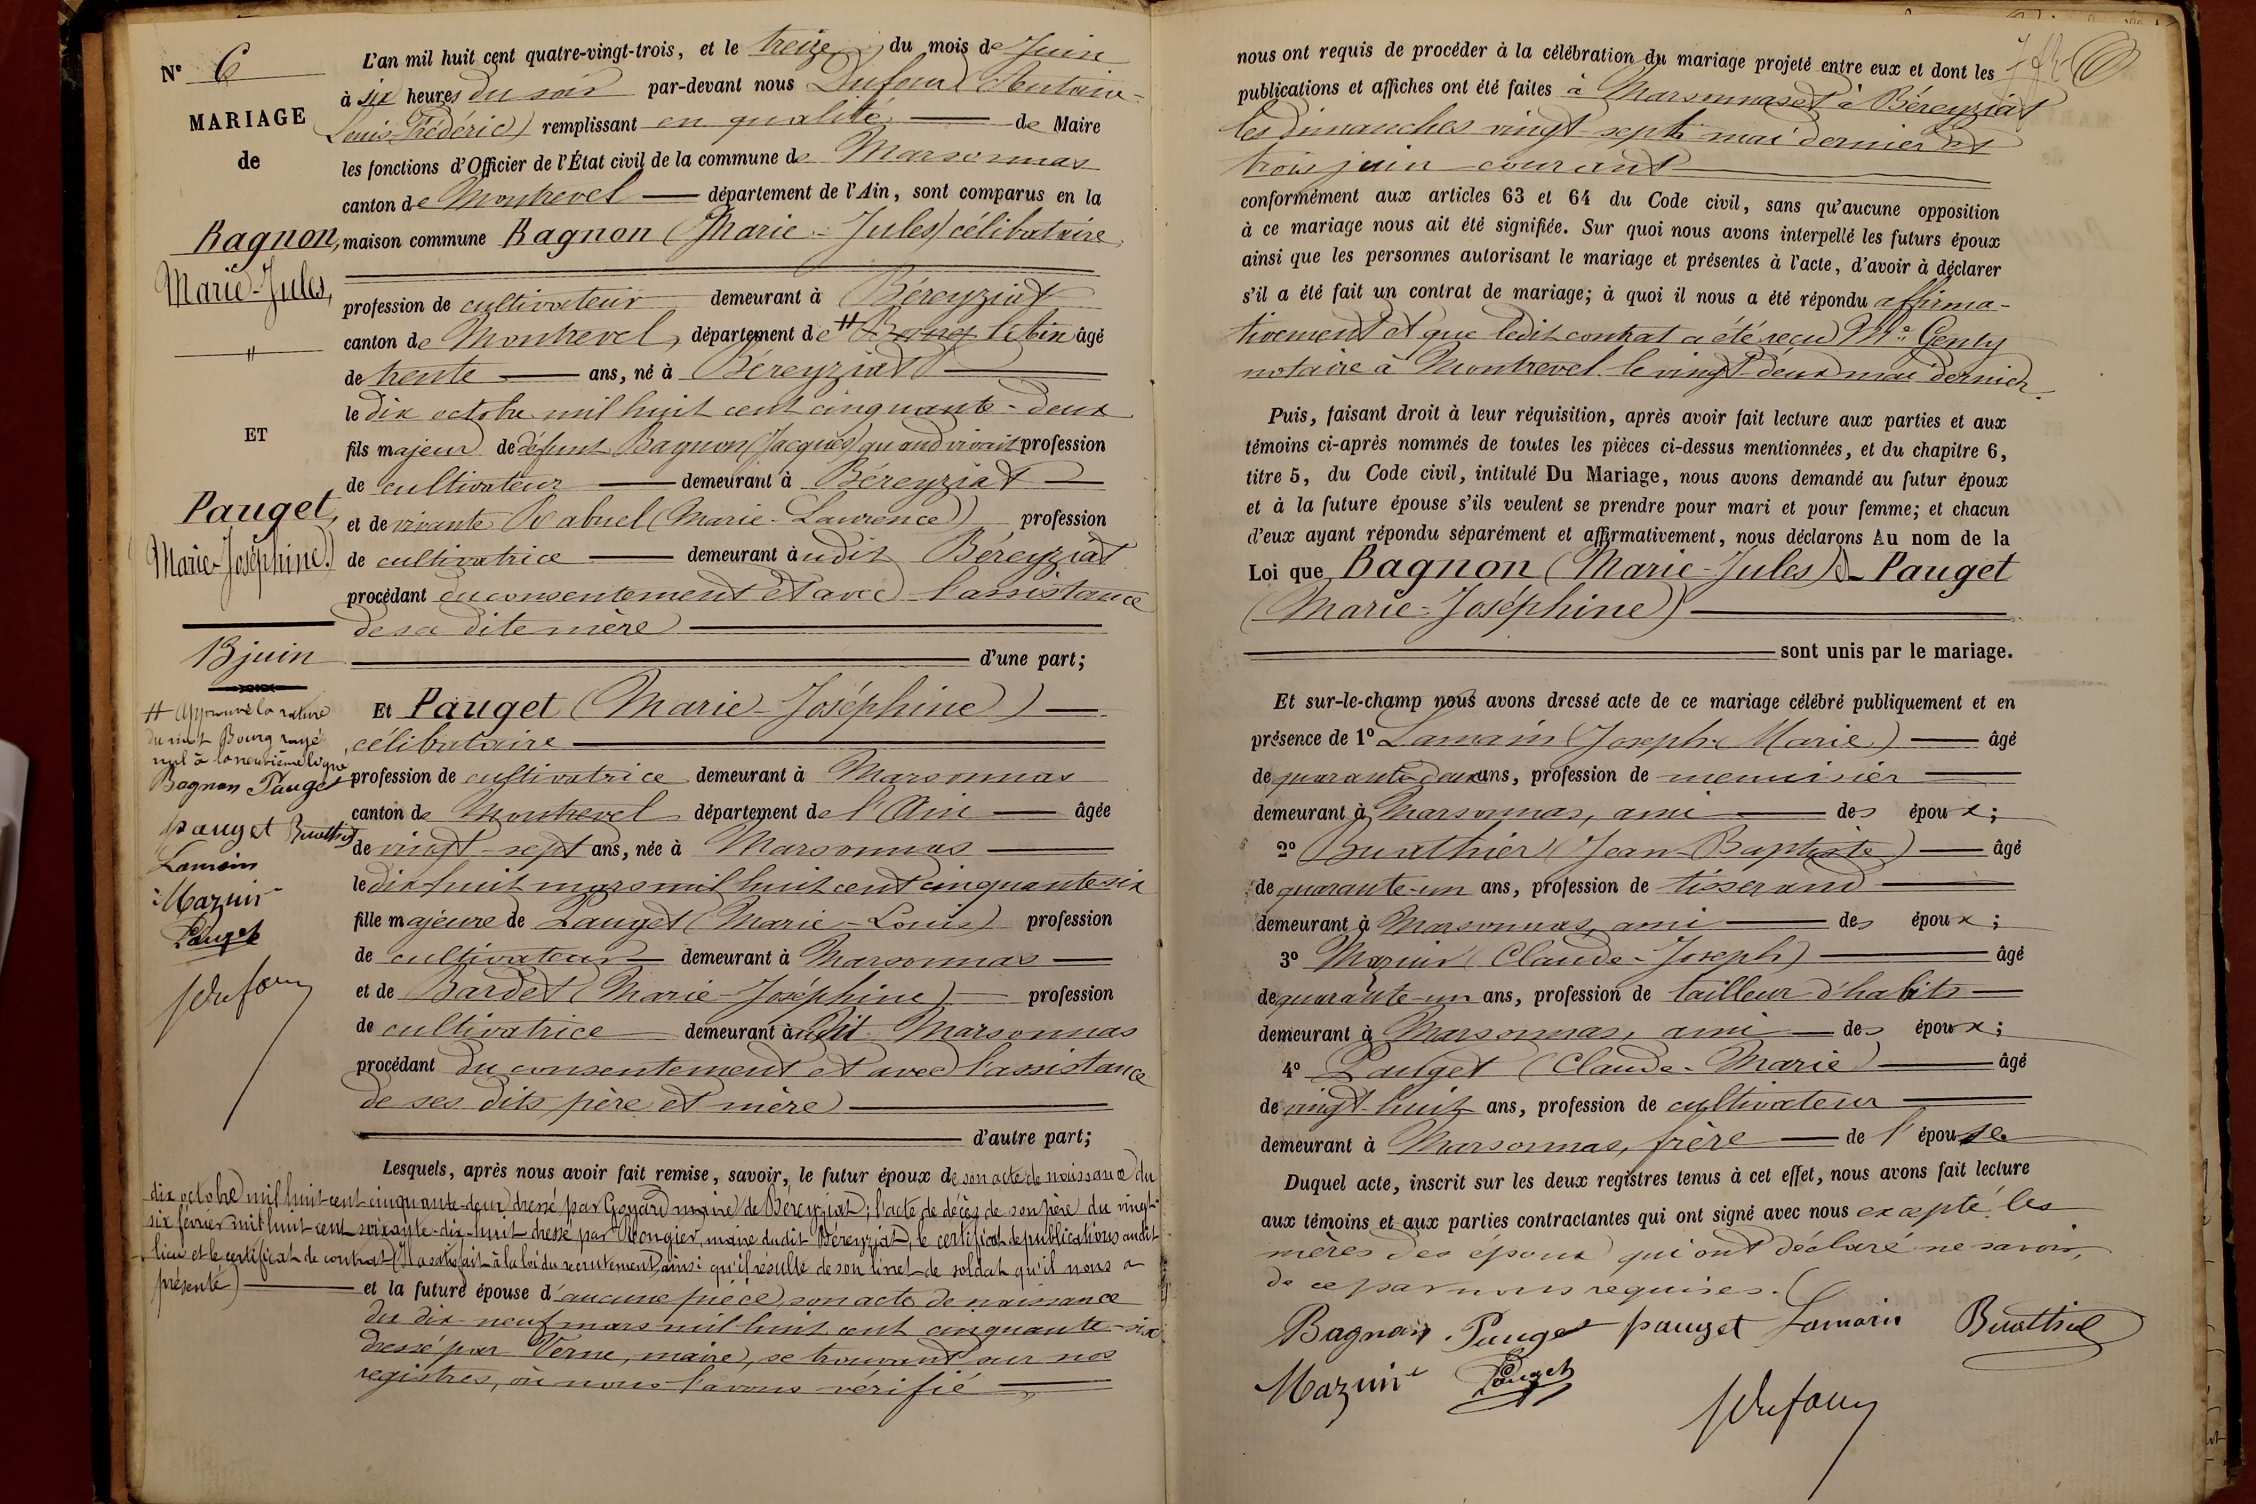 N° 6
MARIAGE
de
Bagnon,
Marie-Jules,
"
ET
Pauget,
Marie-Joséphine.
13 juin
# Approuvé la rature
du mot Bourg rayé
nul à la neuvième ligne
Bagnon Pauget
pauget Buathier
Lamain
Mazuir
Pauget
Dufour
L'an mil huit cent quatre-vingt-trois, et le treize du mois de Juin
à six heures du soir par-devant nous Dufour
Louis Frédéric) remplissant en qualité de Maire
les fonctions d'Officier de l'État civil de la commune de Marsonnas
canton de Montrevel département de l'Ain, sont comparus en la
maison commune Bagnon (Marie-Jules) célibataire,
profession de cultivateur demeurant à Béreyziat
canton de Montrevel, département de # Bourg l'Ain âgé
de trente ans, né à Béreyziat
le dix octobre mil huit cent cinquante-deux
fils majeur de défunt Bagnon (Jacques) quand vivait profession
de cultivateur demeurant à Béreyziat
et de vivante Rabuel (Marie-Laurence) profession
de cultivatrice demeurant audit Béreyziat
procédant du consentement et avec l'assistance
de sa dite mère
d'une part;
Et Pauget (Marie-Joséphine)
célibataire
profession de cultivatrice demeurant à Marsonnas
canton de Montrevel département de l'Ain âgée
de vingt-sept ans, née à Marsonnas
le dix huit mars mil huit cent cinquante-six
fille majeure de Pauget (Marie-Louis) profession
de cultivateur demeurant à Marsonnas
et de Bardet (Marie-Joséphine) profession
de cultivatrice demeurant audit Marsonnas
procédant du consentement et avec l'assistance
de ses dits père et mère
d'autre part;
Lesquels, après nous avoir fait remise, savoir, le futur époux de son acte de naissance du
dix octobre mil huit cent cinquante-deux dressé par Goyard maire de Béreyziat; l'acte de décès de son père du vingt-
six février mil huit cent soixante-dix-huit dressé par Mongier, maire dudit Béreyziat, le certificat de publications audit
lieu et le certificat de contrat (Il a satisfait à la loi du recrutement, ainsi qu'il résulte de son livret de soldat qu'il nous a
présenté) et la future épouse d'aucune pièce, son acte de naissance
du dix-neuf mars mil huit cent cinquante-six
dressé par Verne, maire, se trouvant sur nos
registres, où nous l'avons vérifié
nous ont requis de procéder à la célébration du mariage projeté entre eux et dont les
publications et affiches ont été faites à Marsonnas et à Béreyziat
les dimanches vingt-sept mai dernier et
trois juin courant
conformément aux articles 63 et 64 du Code civil, sans qu'aucune opposition
à ce mariage nous ait été signifiée. Sur quoi nous avons interpellé les futurs époux
ainsi que les personnes autorisant le mariage et présentes à l'acte, d'avoir à déclarer
s'il a été fait un contrat de mariage; à quoi il nous a été répondu affirma-
tivement et que ledit contrat a été reçu Me Genty
notaire à Montrevel le vingt-deux mai dernier.
Puis, faisant droit à leur réquisition, après avoir fait lecture aux parties et aux
témoins ci-après nommés de toutes les pièces ci-dessus mentionnées, et du chapitre 6,
titre 5, du Code civil, intitulé Du Mariage, nous avons demandé au futur époux
et à la future épouse s'ils veulent se prendre pour mari et pour femme; et chacun
d'eux ayant répondu séparément et affirmativement, nous déclarons Au nom de la
Loi que Bagnon (Marie-Jules) & Pauget
(Marie-Joséphine)
sont unis par le mariage.
Et sur-le-champ nous avons dressé acte de ce mariage célébré publiquement et en
présence de 1° Lamain (Joseph-Marie) âgé
de quarante-deux ans, profession de menuisier
demeurant à Marsonnas, ami des époux;
2° Buathier (Jean-Baptiste) âgé
de quarante-un ans, profession de tisserand
demeurant à Marsonnas, ami des époux;
3° Mazuir (Claude-Joseph) âgé
de quarante-un ans, profession de tailleur d'habits
demeurant à Marsonnas, ami des époux;
4° Pauget (Claude-Marie) âgé
de vingt-huit ans, profession de cultivateur
demeurant à Marsonnas, frère de l'épouse
Duquel acte, inscrit sur les deux registres tenus à cet effet, nous avons fait lecture
aux témoins et aux parties contractantes qui ont signé avec nous excepté les
mères des époux qui ont déclaré ne savoir,
de ce par nous requises.
Bagnon Pauget pauget Lamain Buathier
Mazuir Pauget
Dufour